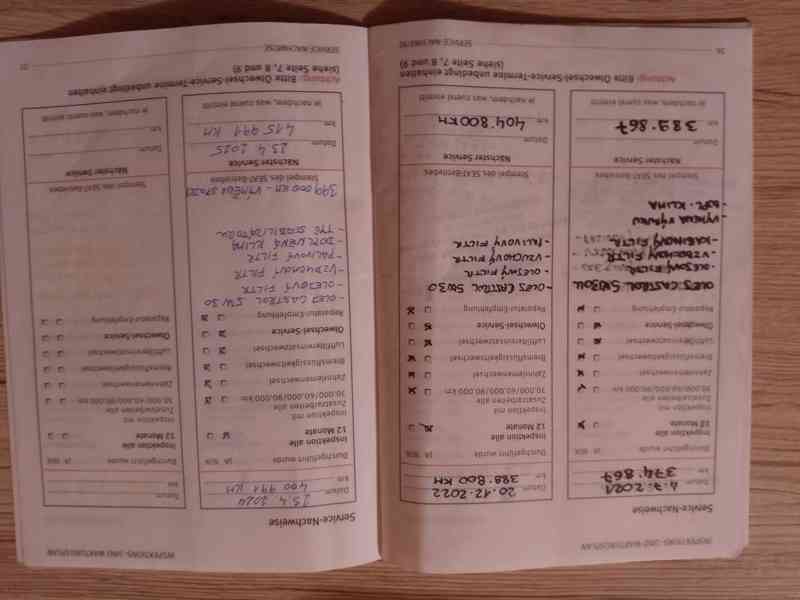 INSPEKTIONS- UND WARTUNGSPLAN
Service-Nachweise
Datum 4.7.2021
km 374'867
Durchgeführt wurde JA NEIN
Inspektion alle
12 Monate
Inspektion mit
Zusatzarbeiten alle
30.000/60.000/90.000 km
Zahnriemenwechsel
Bremsflüssigkeitswechsel
Luftfiltereinsatzwechsel
Ölwechsel-Service
Reparatur-Empfehlung
OLEJ CASTROL 5W30LL
- OLEJOVÝ FILTR
- VZDUCHOVÝ FILTR
- KABINOVÝ FILTR
- VÝMĚNA VÝFUKU
- DOPL. KLIMA
Stempel des SEAT-Betriebes
Nächster Service
Datum
km 389'867
je nachdem, was zuerst eintritt
Datum 20.12.2022
km 388'800 KM
Durchgeführt wurde JA NEIN
Inspektion alle
12 Monate
Inspektion mit
Zusatzarbeiten alle
30.000/60.000/90.000 km
Zahnriemenwechsel
Bremsflüssigkeitswechsel
Luftfiltereinsatzwechsel
Ölwechsel-Service
Reparatur-Empfehlung
- OLEJ CASTROL 5W30
- OLEJOVÝ FILTR
- VZUCHOVÝ FILTR
- PALIVOVÝ FILTR
Stempel des SEAT-Betriebes
Nächster Service
Datum
km 404'800 KM
je nachdem, was zuerst eintritt
Achtung: Bitte Ölwechsel-Service-Termine unbedingt einhalten
(siehe Seite 7, 8 und 9)
SERVICE-NACHWEISE
INSPEKTIONS- UND WARTUNGSPLAN
Service-Nachweise
Datum 23.4.2024
km 400 991 KM
Durchgeführt wurde JA NEIN
Inspektion alle
12 Monate
Inspektion mit
Zusatzarbeiten alle
30.000/60.000/90.000 km
Zahnriemenwechsel
Bremsflüssigkeitswechsel
Luftfiltereinsatzwechsel
Ölwechsel-Service
Reparatur-Empfehlung
- OLEJ CASTROL 5W30
- OLEJOVÝ FILTR
- VZDUCHOVÝ FILTR
- PALIVOVÝ FILTR
- DOPLNĚNÁ KLIMA
- TYČ STABILIZÁTORU
399000 KM - VÝMĚNA
Stempel des SEAT-Betriebes
Nächster Service
Datum 23.4 2025
km 415 991 KM
je nachdem, was zuerst eintritt
Datum
km
Durchgeführt wurde JA NEIN
Inspektion alle
12 Monate
Inspektion mit
Zusatzarbeiten alle
30.000/60.000/90.000 km
Zahnriemenwechsel
Bremsflüssigkeitswechsel
Luftfiltereinsatzwechsel
Ölwechsel-Service
Reparatur-Empfehlung
Stempel des SEAT-Betriebes
Nächster Service
Datum
km
je nachdem, was zuerst eintritt
Achtung: Bitte Ölwechsel-Service-Termine unbedingt einhalten
(siehe Seite 7, 8 und 9)
SERVICE-NACHWEISE